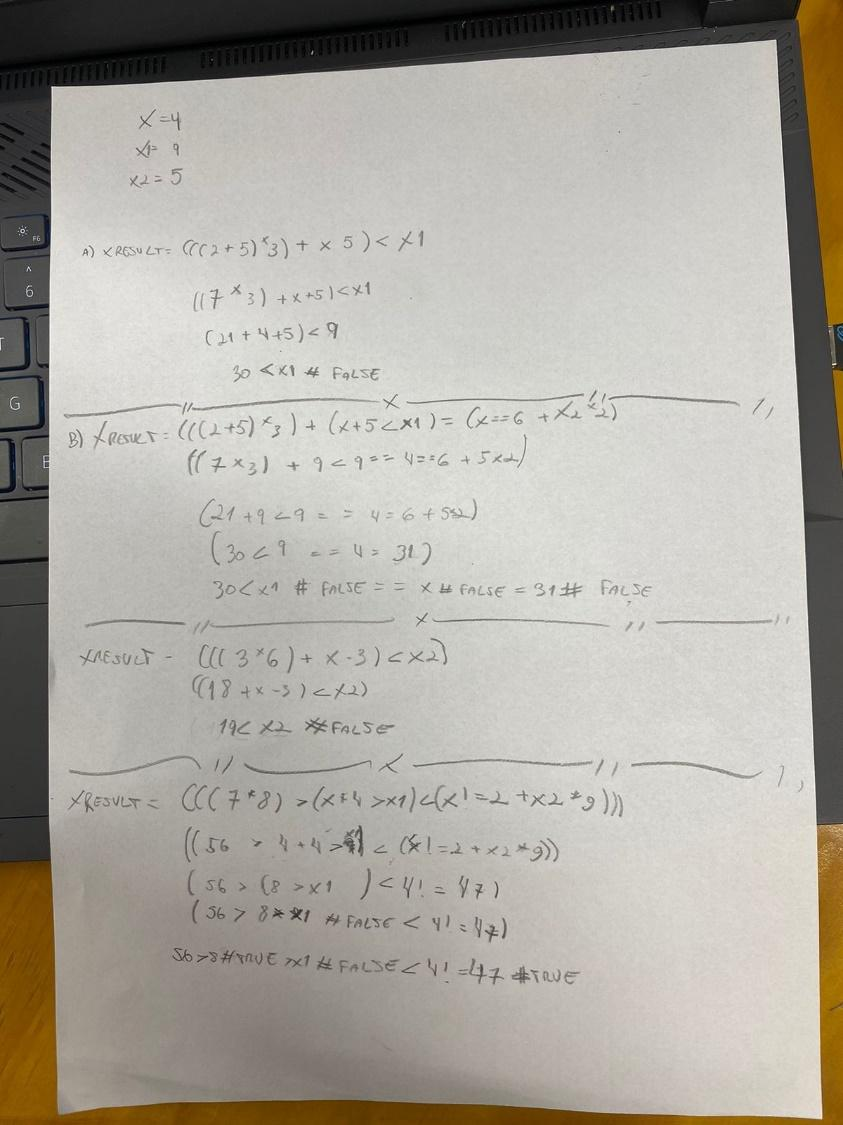 X = 4
X1 = 9
X2 = 5
A) XRESULT = (((2+5)*3) + x 5) < X1
((7 * 3) + x+5) < x1
(21 + 4+5) < 9
30 < x1 # FALSE
// X // //
B) XRESULT = (((2+5)*3) + (x+5 < x1) = (x==6 + X2 * 2)
((7 x 3) + 9 < 9 == 4==6 + 5x2)
(21 + 9 < 9 = = 4 = 6 + )
(30 < 9 = = 4 = 31)
30 < x1 # FALSE = = x # FALSE = 31 # FALSE
// X // //
XRESULT - (((3*6) + x -3) < x2)
((18 + x -3) < x2)
19 < x2 # FALSE
// X // //
XRESULT = (((7*8) > (x+4 > x1) < (x!=2 + x2 * 9)))
((56 > 4+4 > ) < (x!=2 + x2 * 9))
(56 > (8 > x1 ) < 4! = 47)
(56 > 8 # FALSE < 4! = 47)
56 > 8 # TRUE > x1 # FALSE < 4! = 47 # TRUE
F6
^
6
G